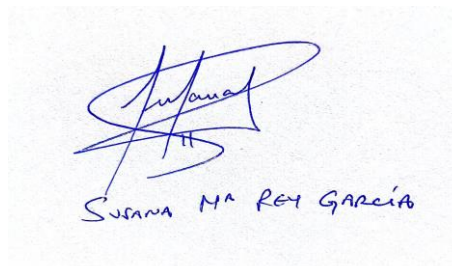 Susana
SUSANA Mª REY GARCÍA